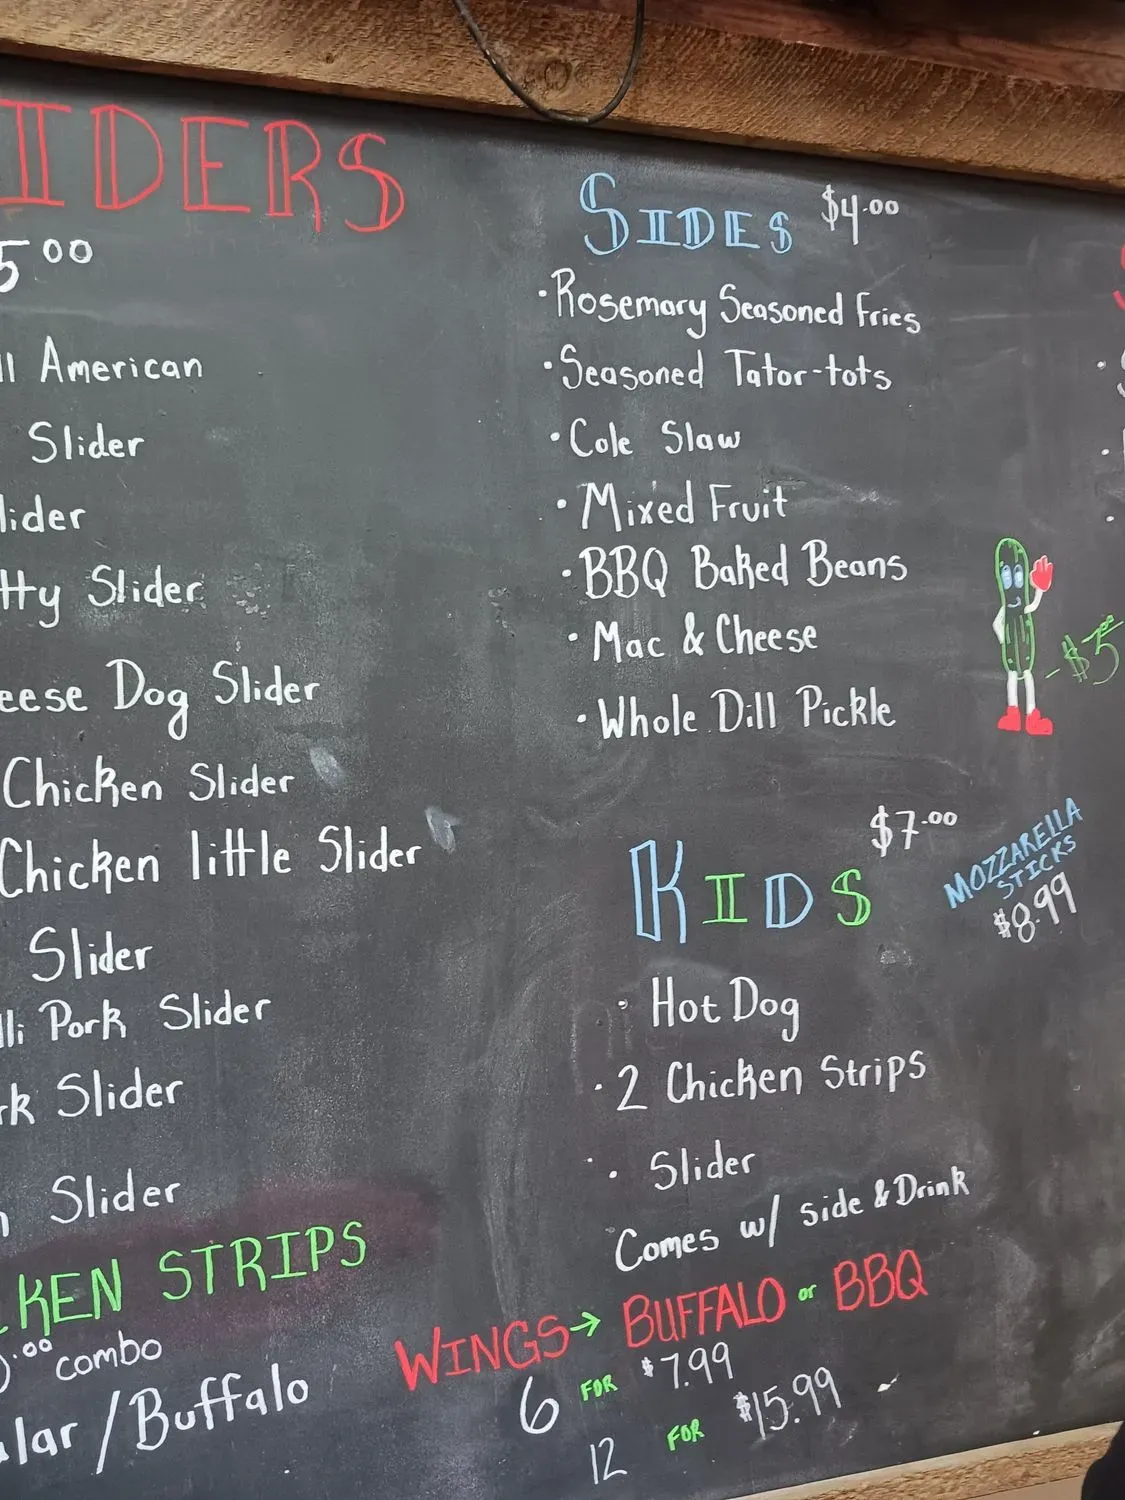 IDERS
5.00
ll American
Slider
lider
tty Slider
eese Dog Slider
Chicken Slider
Chicken little Slider
Slider
lli Pork Slider
rk Slider
Slider
KEN STRIPS
.00 combo
ular/Buffalo
SIDES $4.00
· Rosemary Seasoned Fries
· Seasoned Tator-tots
· Cole Slaw
· Mixed Fruit
· BBQ Baked Beans
· Mac & Cheese
· Whole Dill Pickle
KIDS $7.00
· Hot Dog
· 2 Chicken Strips
· Slider
Comes w/ side & Drink
MOZZARELLA
STICKS
$8.99
WINGS → BUFFALO or BBQ
6 FOR $7.99
12 FOR $15.99